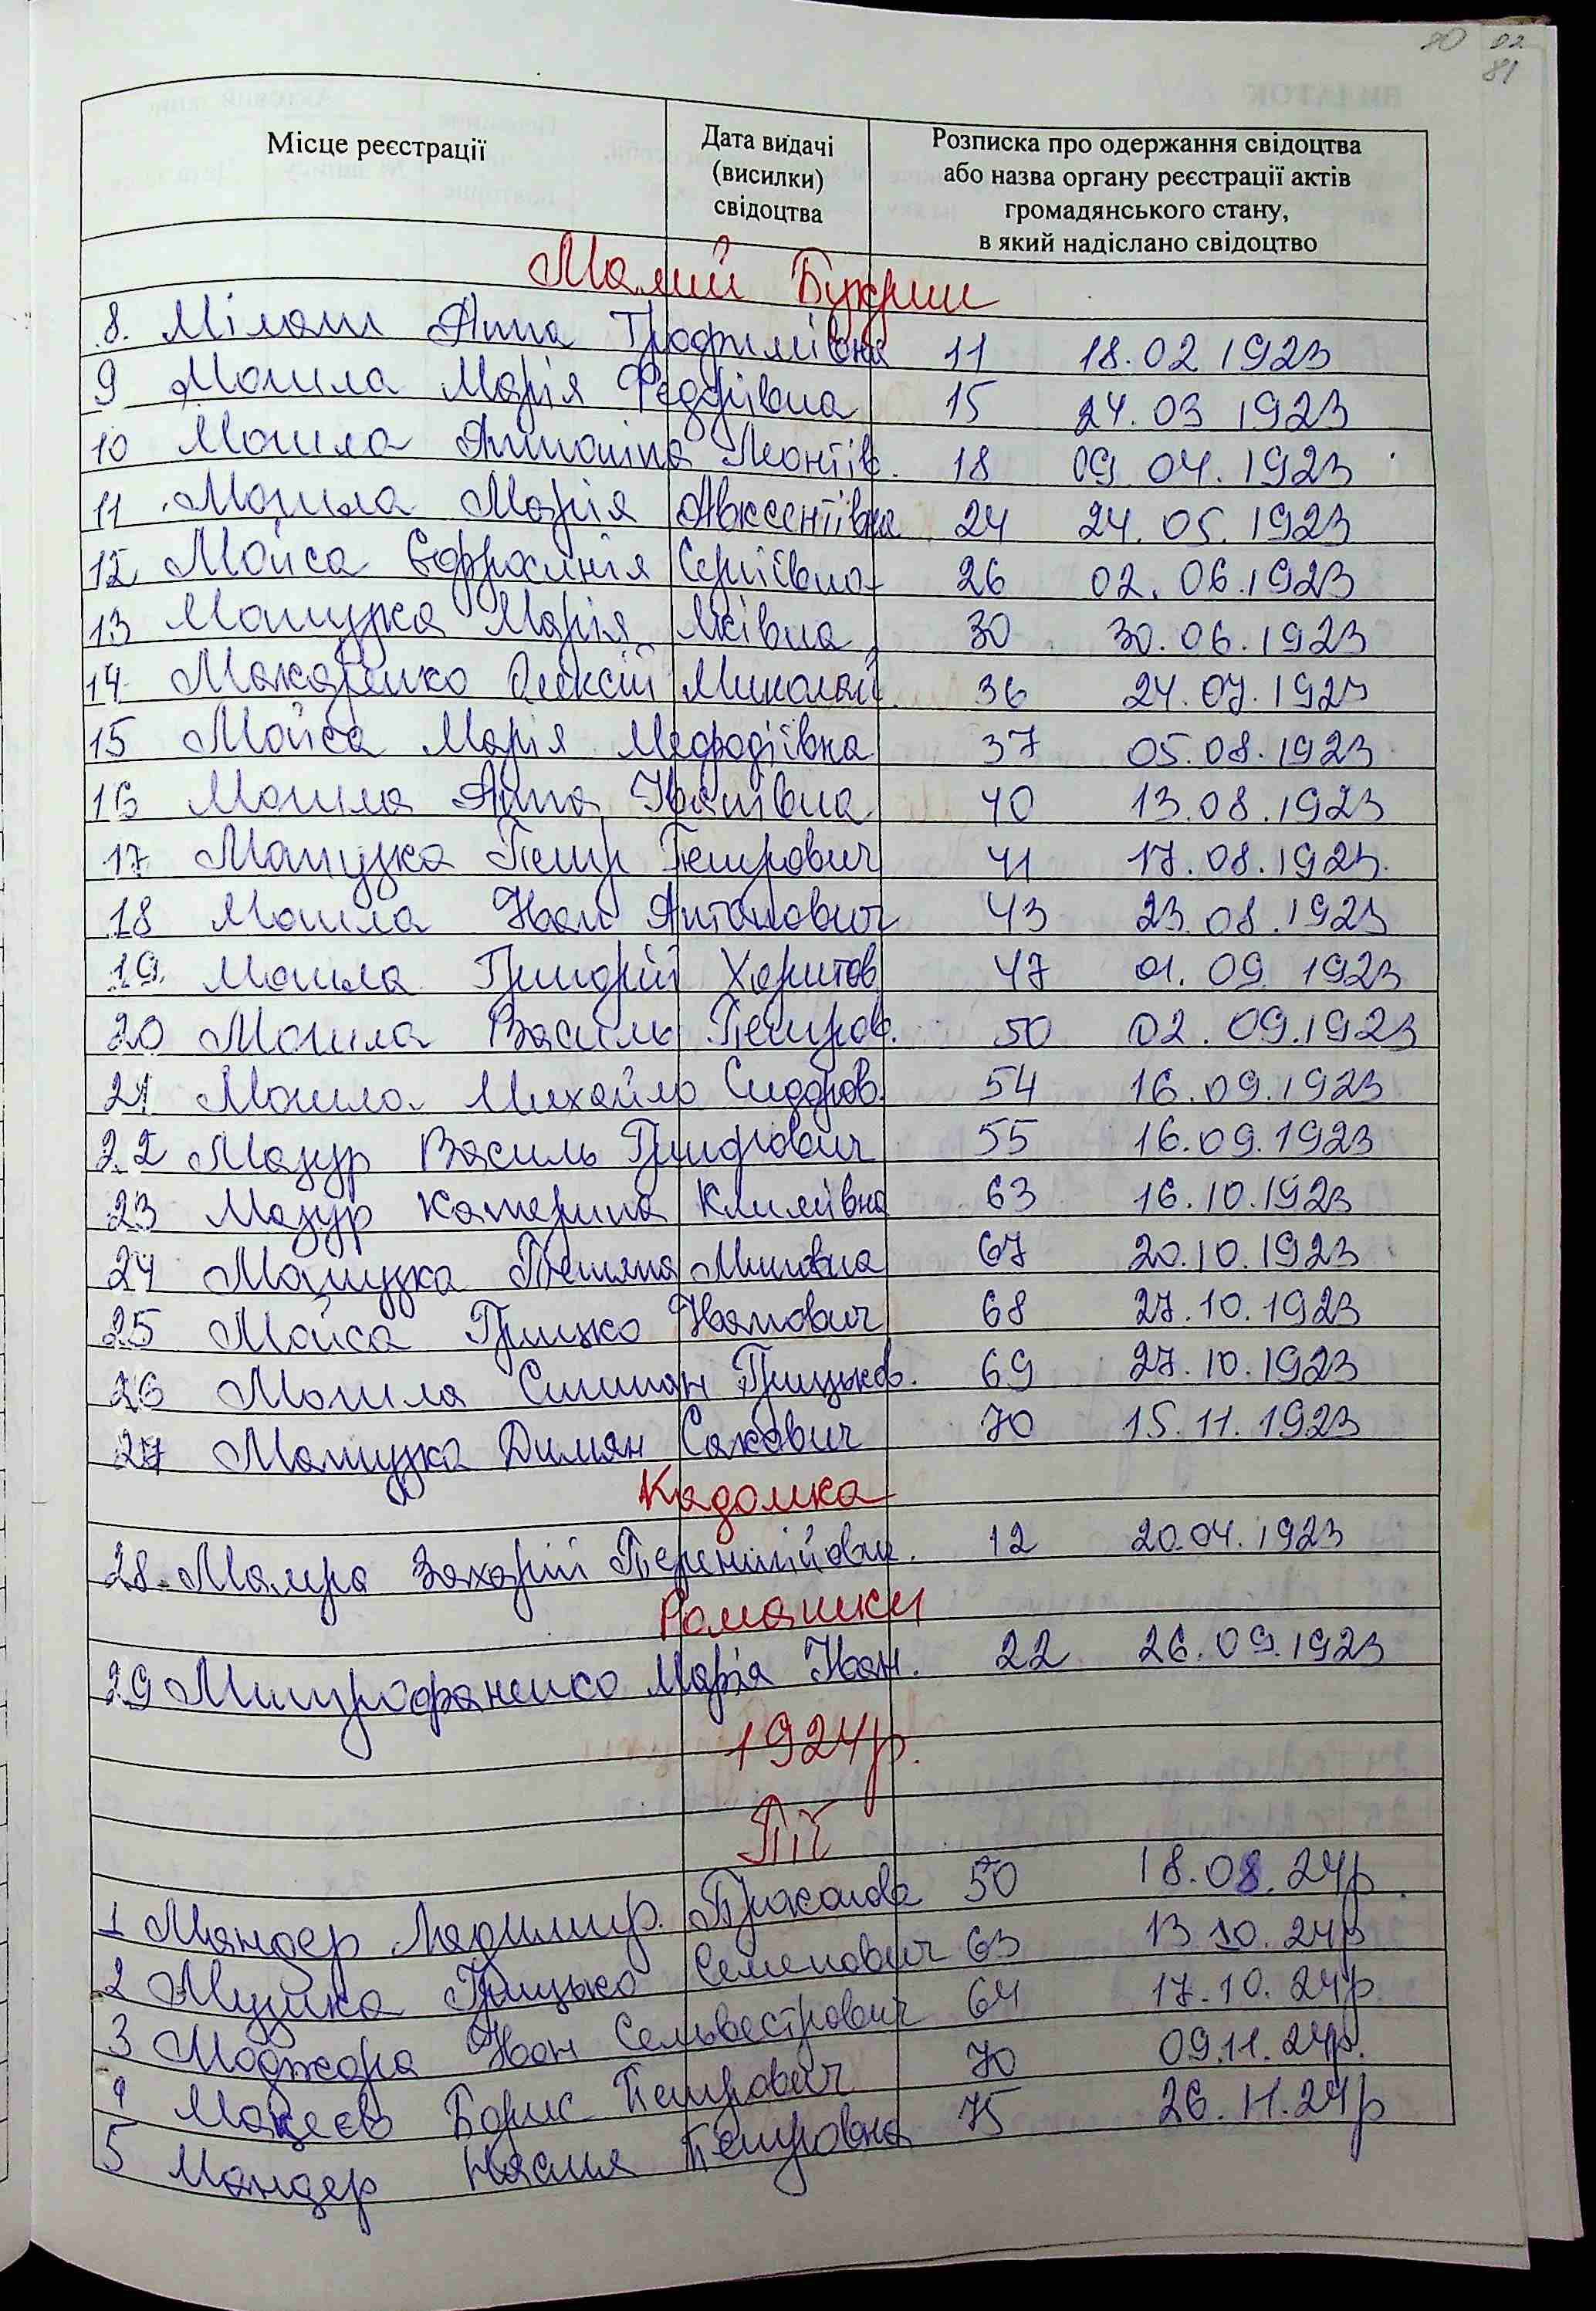 80 82
81
Місце реєстрації
Дата видачі
(висилки)
свідоцтва
Розписка про одержання свідоцтва
або назва органу реєстрації актів
громадянського стану,
в який надіслано свідоцтво
Малий Букрин
8. Мілаш Анна Трофимівна 11 18.02 1923
9 Могила Марія Федорівна 15 24.03 1923
10 Могила Антоніна Леонтів. 18 09 04. 1923
11 Могила Марія Авксентіївна 24 24. 05. 1923
12 Мойса Єфросинія Сергіївна 26 02. 06.1923
13 Мошузка Марія Яківна 30 30.06.1923
14 Макаренко Олексій Миколай. 36 24.07.1923
15 Мойса Марія Мефодіївна 37 05.08.1923
16 Могила Анна Іванівна 40 13.08.1923
17 Машузка Петр Петрович 41 17.08.1923.
18 Могила Іван Антонович 43 23.08.1923
19. Могила Григорій Харитов. 47 01. 09. 1923
20 Могила Василь Петров. 50 02. 09.1923
21 Могила Михайло Сидоров. 54 16.09.1923
22 Мазур Василь Григорович 55 16.09.1923
23 Мазур Катерина Климівна 63 16.10.1923
24 Машузка Тетяна Минівна 67 20.10.1923
25 Мойса Грицко Іванович 68 27.10.1923
26 Могила Степан Грицьков. 69 27.10.1923
27 Машузка Димян Сакович 70 15.11.1923
Кадомка
28. Мамра Захарій Терентійович. 12 20.04.1923
Ромашки
29 Митрофаненко Марія Іван. 22 26.09.1923
1924р.
Пії
1 Мандер 50 18.08.24р.
2 Музика Грицько Семенович 63 13 10.24р
3 Моджара Іван Сельвестрович 64 17.10.24р
4 Мацеєв Борис Петрович 70 09.11.24р.
5 Мандер Настя Петровна 75 26.11.24р